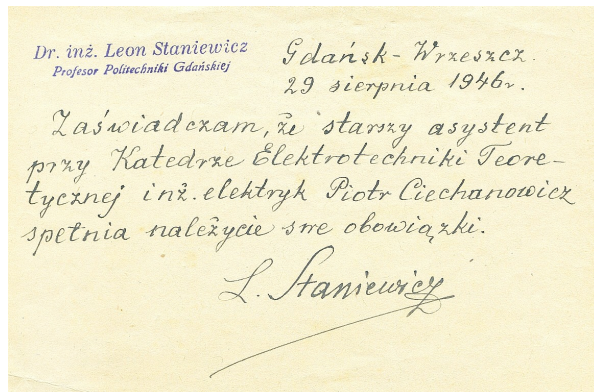 Dr. inż. Leon Staniewicz
Profesor Politechniki Gdańskiej
Gdańsk-Wrzeszcz.
29 sierpnia 1946r.
Zaświadczam, że starszy asystent
przy Katedrze Elektrotechniki Teore-
tycznej inż. elektryk Piotr Ciechanowicz
spełnia należycie swe obowiązki.
L. Staniewicz